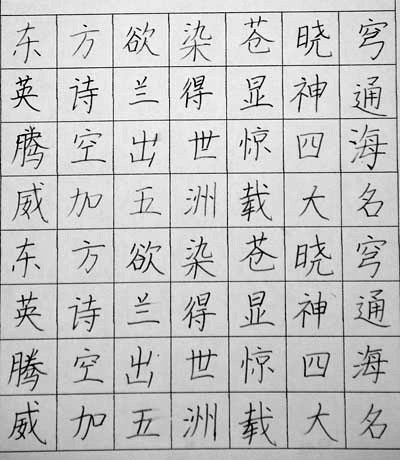 东方欲染苍晓穹
英诗兰得显神通
腾空出世惊四海
威加五洲载大名
东方欲染苍晓穹
英诗兰得显神通
腾空出世惊四海
威加五洲载大名